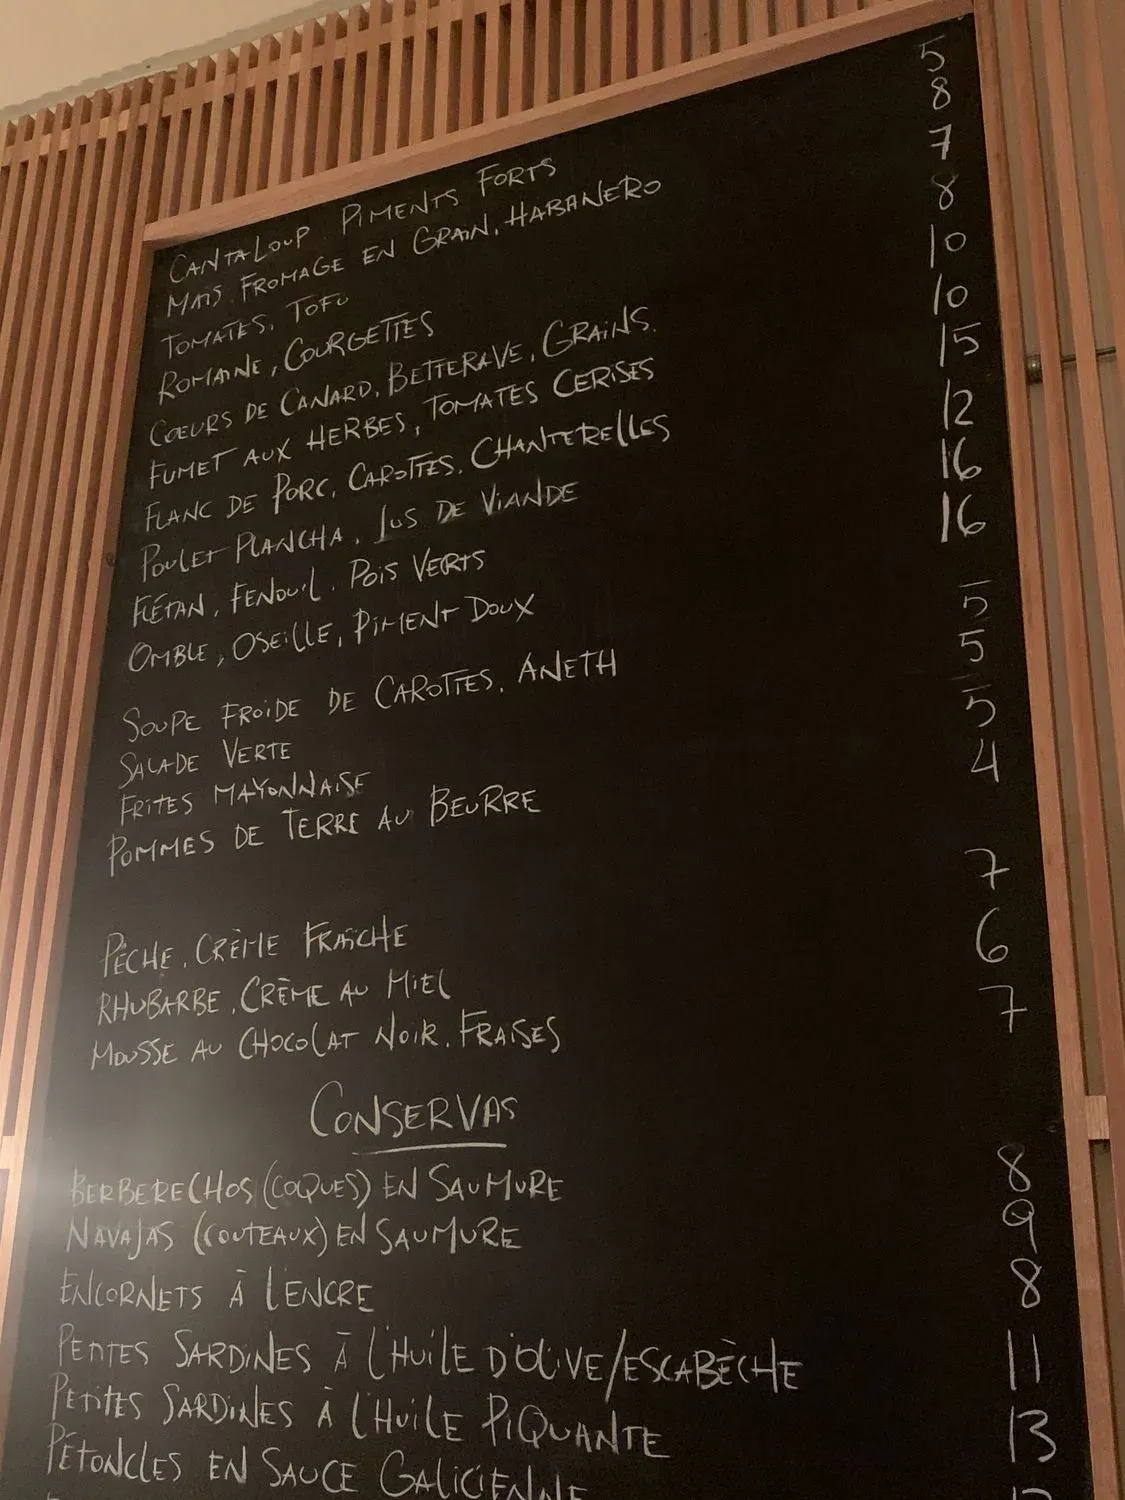 CANTALOUP PIMENTS FORTS 5
MAÏS. FROMAGE EN GRAIN. HABANERO 8
TOMATES. TOFU 7
ROMAINE, COURGETTES 8
COEURS DE CANARD. BETTERAVE. GRAINS. 10
FUMET AUX HERBES, TOMATES CERISES 10
FLANC DE PORC. CAROTTES. CHANTERELLES 15
POULET PLANCHA. JUS DE VIANDE 12
FLÉTAN, FENOUIL. POIS VERTS 16
OMBLE, OSEILLE, PIMENT DOUX 16
SOUPE FROIDE DE CAROTTES. ANETH 5
SALADE VERTE 5
FRITES MAYONNAISE 5
POMMES DE TERRE AU BEURRE 4
PÊCHE. CRÈME FRAÎCHE 7
RHUBARBE. CRÈME AU MIEL 6
MOUSSE AU CHOCOLAT NOIR. FRAISES 7
CONSERVAS
BERBERECHOS (COQUES) EN SAUMURE 8
NAVAJAS (COUTEAUX) EN SAUMURE 9
ENCORNETS À L'ENCRE 8
PETITES SARDINES À L'HUILE D'OLIVE/ESCABÈCHE 11
PETITES SARDINES À L'HUILE PIQUANTE 13
PÉTONCLES EN SAUCE GALICIENNE